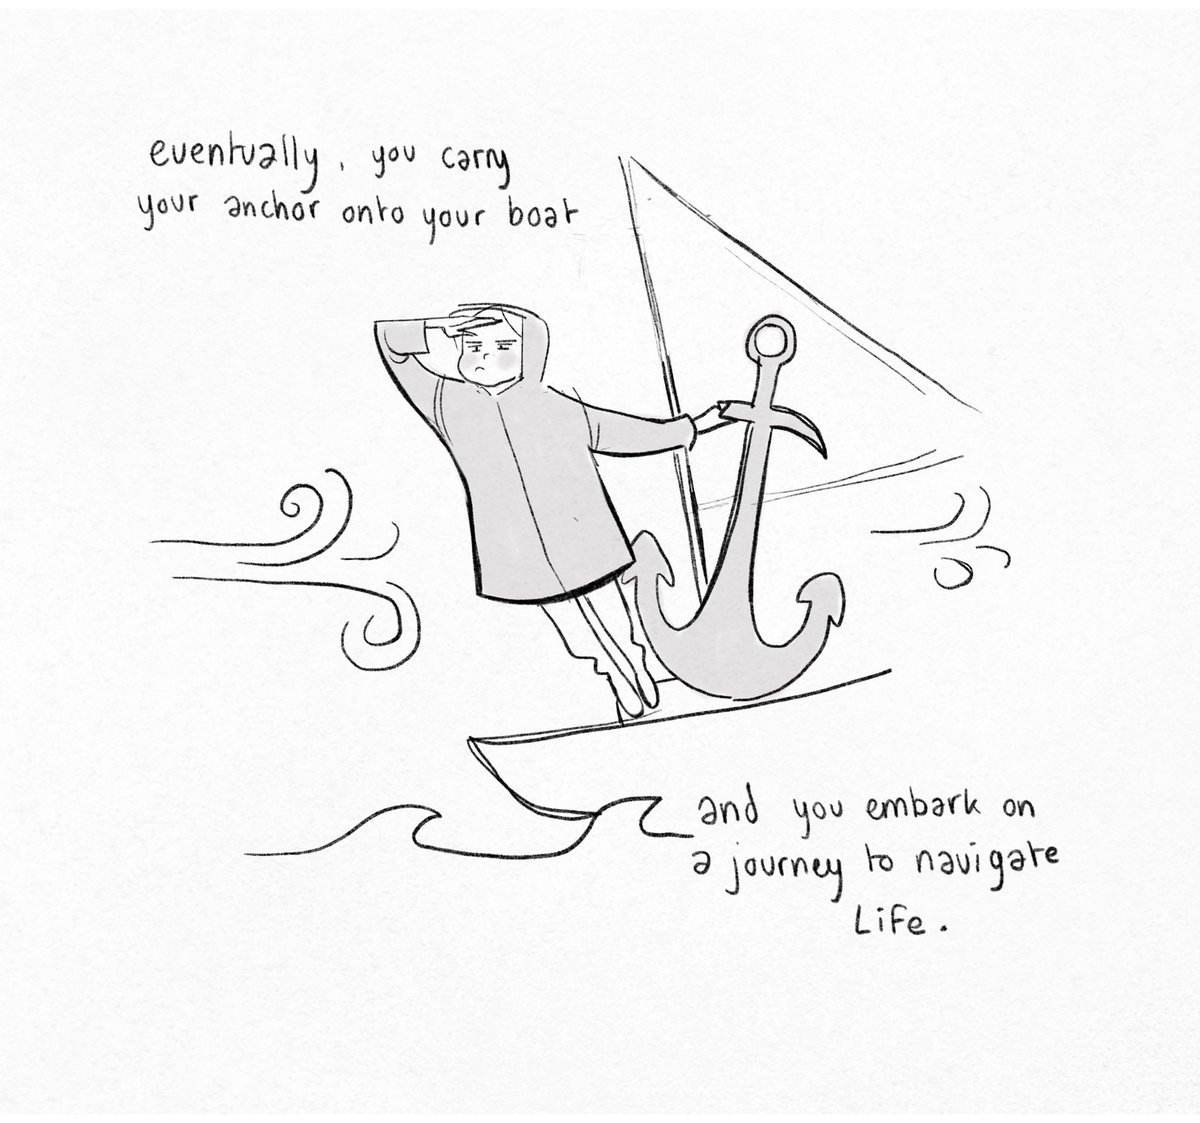 eventually, you carry
your anchor onto your boat
and you embark on
a journey to navigate
Life.